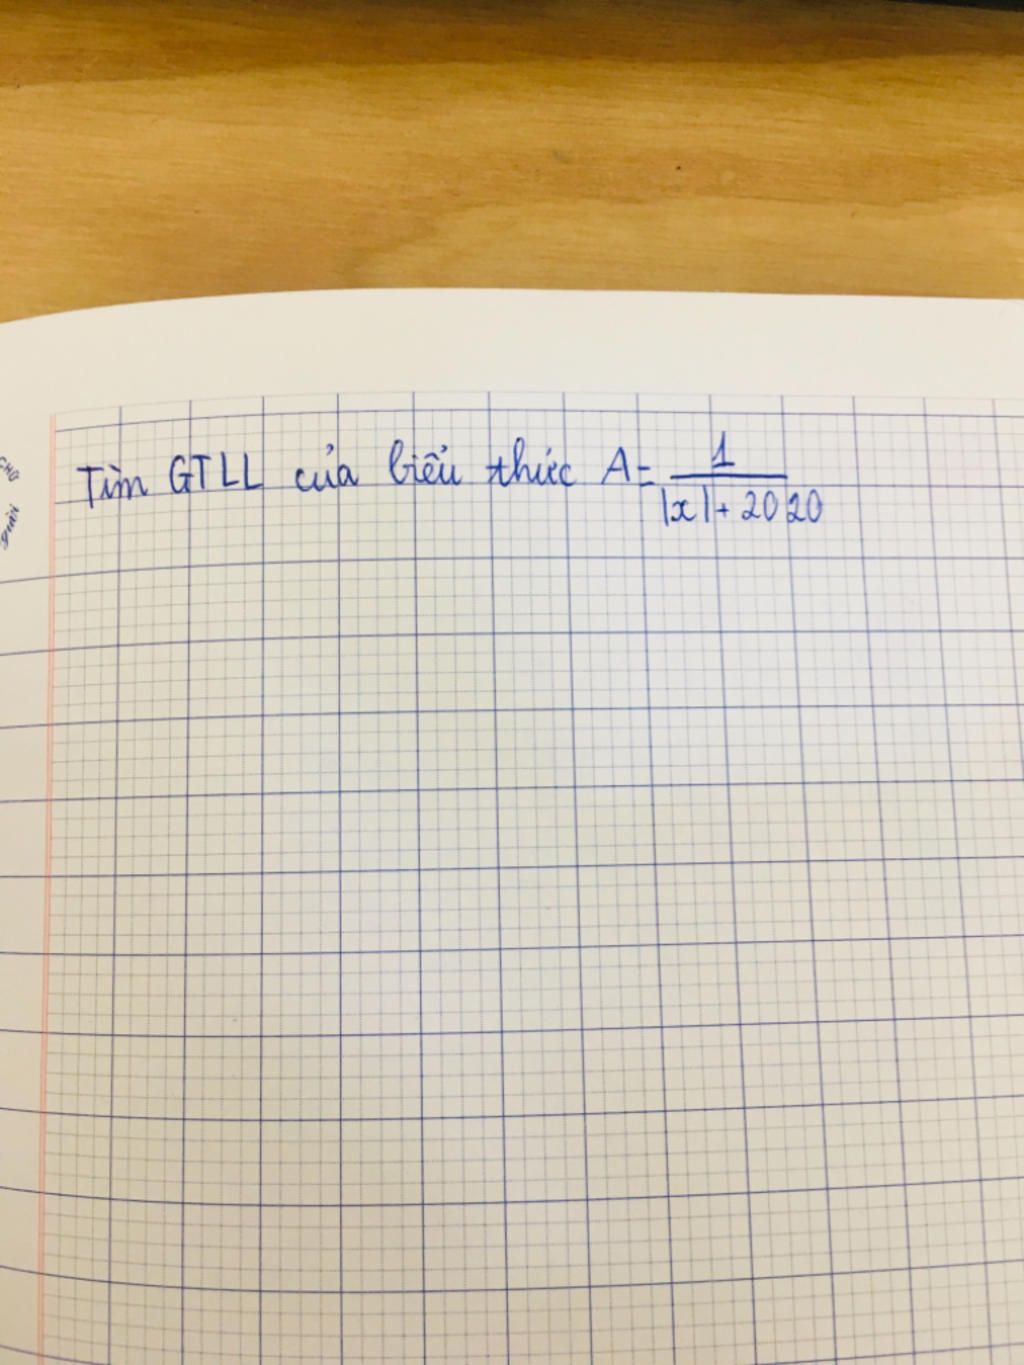 Tìm GTLL của biểu thức A = \frac{1}{|x| + 2020}